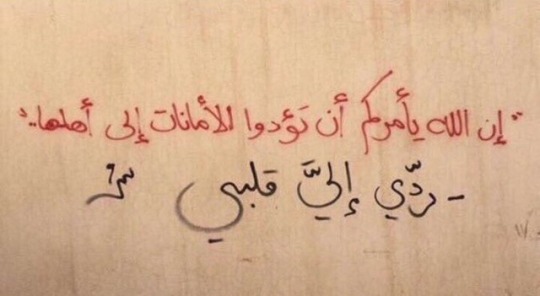 "إن الله يأمركم أن تؤدوا الأمانات إلى أهلها.."
- ردّي إليَّ قلبي